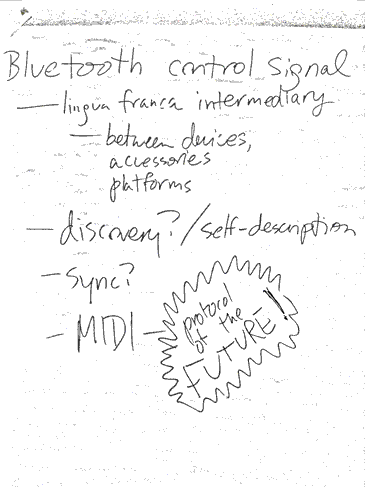 Bluetooth control signal
— lingua franca intermediary
— between devices,
accessories
platforms
— discovery? / self-description
— sync?
— MIDI — protocol
of the
FUTURE!